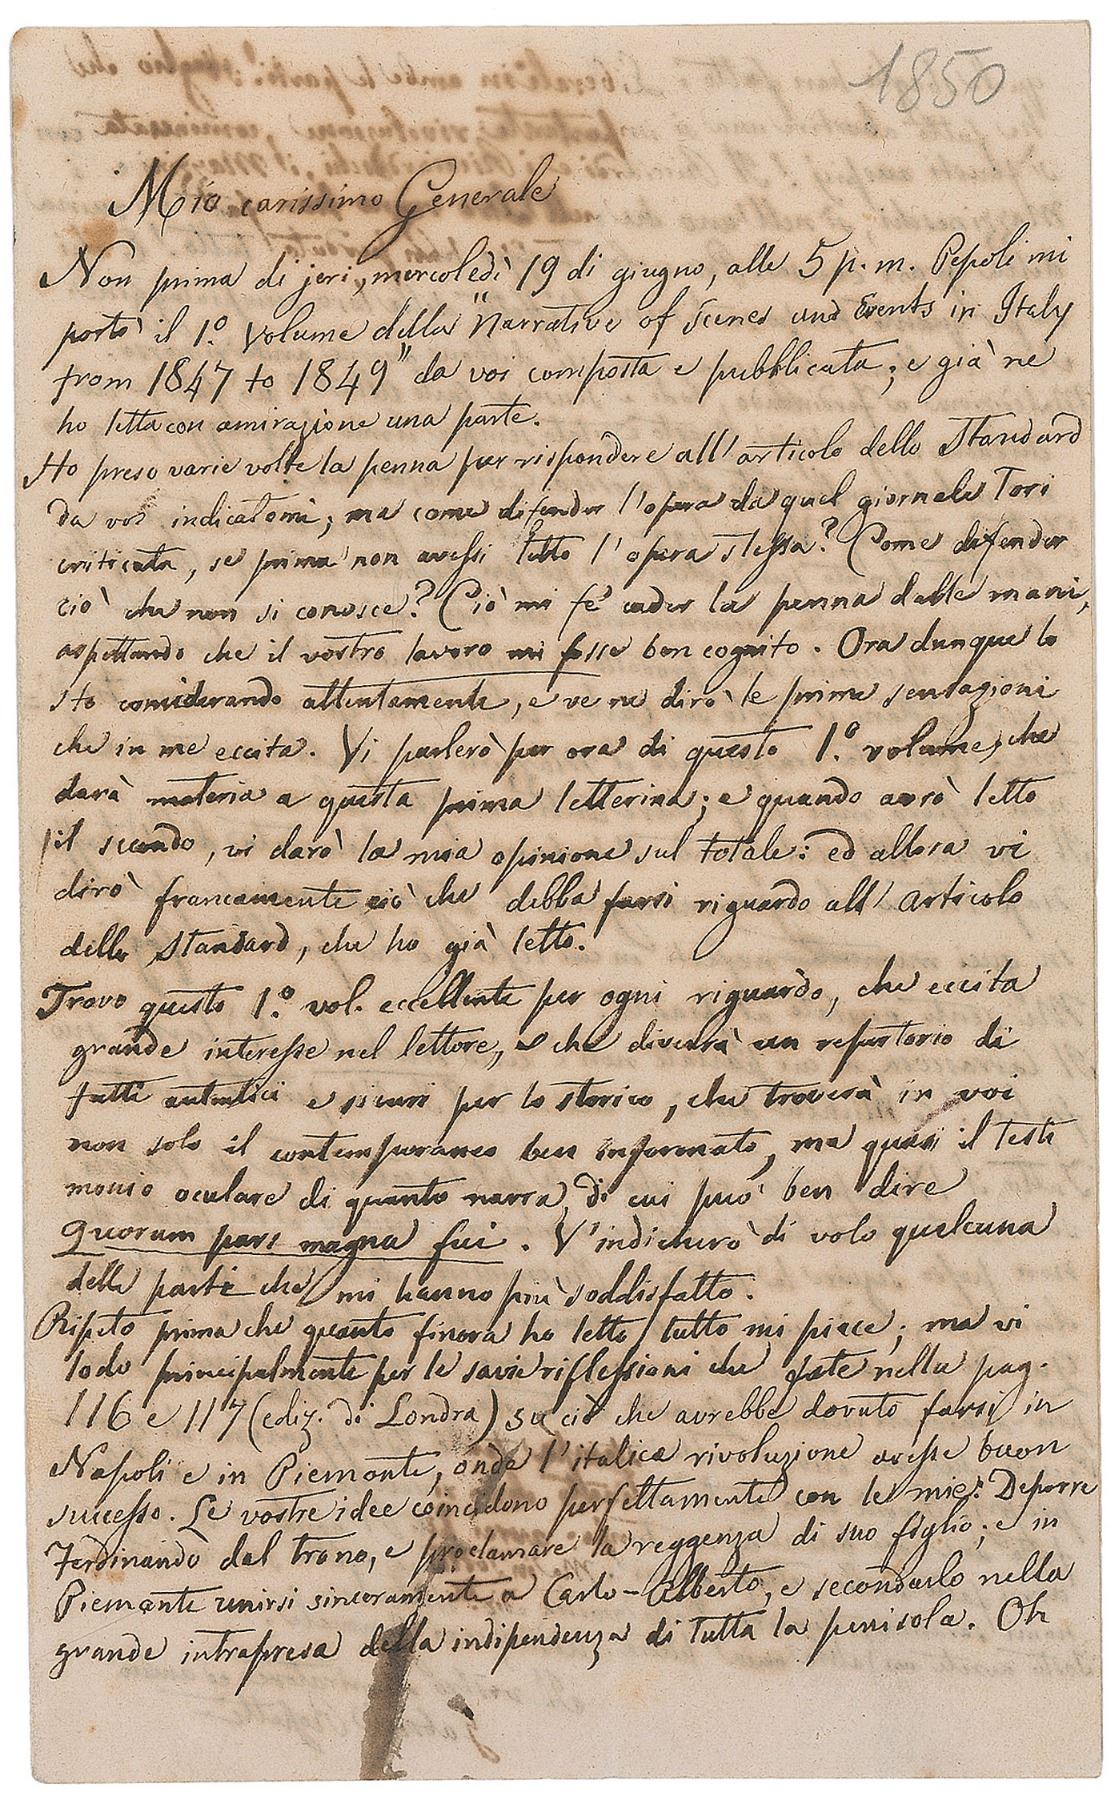 1850
Mio carissimo Generale
Non prima di jeri, mercoledì 19 di giugno, alle 5 p.m. Pepoli mi
portò il 1.º volume della "Narrative of Scenes and Events in Italy
from 1847 to 1849" da voi composta e pubblicata; e già ne
ho letta con amirazione una parte.
Ho preso varie volte la penna per rispondere all'articolo dello Standard
da voi indicatomi; ma come difender l'opera da quel giornale Tori
criticata, se prima non avessi letto l'opera stessa? Come difender
ciò che non si conosce? Ciò mi fe' cader la penna dalle mani,
aspettando che il vostro lavoro mi fosse ben cognito. Ora dunque lo
sto considerando attentamente, e ve ne dirò le prime sensazioni
che in me eccita. Vi parlerò per ora di questo 1.º volume, che
darà materia a questa prima letterina; e quando avrò letto
il secondo, vi darò la mia opinione sul totale: ed allora vi
dirò francamente ciò che debba farsi riguardo all'articolo
dello Standard, che ho già letto.
Trovo questo 1.º vol. eccellente per ogni riguardo, che eccita
grande interesse nel lettore, e che diverrà un repertorio di
fatti autentici e sicuri per lo storico, che troverà in voi
non solo il contemporaneo ben informato, ma quasi il testi
monio oculare di quanto narra, di cui può ben dire
quorum pars magna fui. V'indicherò di volo qualcuna
delle parti che mi hanno più soddisfatto.
Ripeto prima che quanto finora ho letto tutto mi piace; ma vi
lodo principalmente per le savie riflessioni che fate nella pag.
116 e 117 (ediz. di Londra) su ciò che avrebbe dovuto farsi in
Napoli e in Piemonte, onde l'italica rivoluzione avesse buon
successo. Le vostre idee coincidono perfettamente con le mie: Deporre
Ferdinando dal trono, e proclamare la reggenza di suo figlio; e in
Piemonte unirsi sinceramente a Carlo-Alberto, e secondarlo nella
grande intrapresa della indipendenza di tutta la penisola. Oh